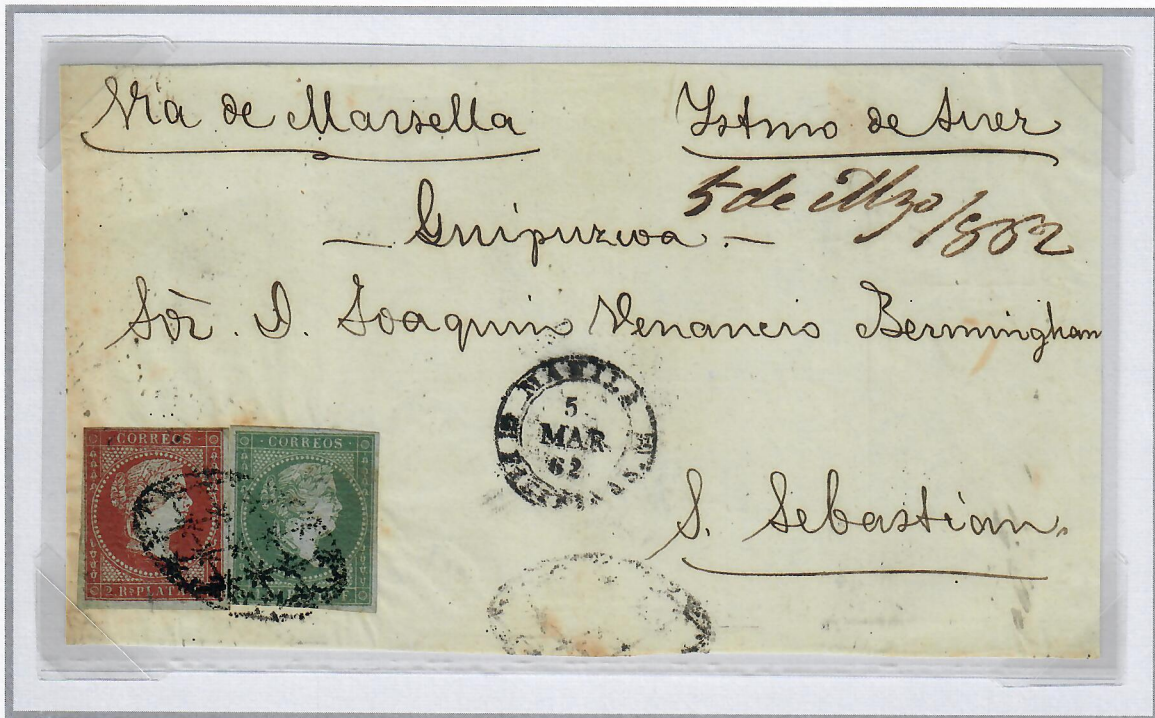 Via de Marsella
Istmo de Suez
5 de Mzo/862
— Guipuzcoa. —
Sör. D. Joaquin Venancio Bermingham
MANILA
5
MAR
62
CORREOS
2 Rs PLATA
CORREOS
S. Sebastian.